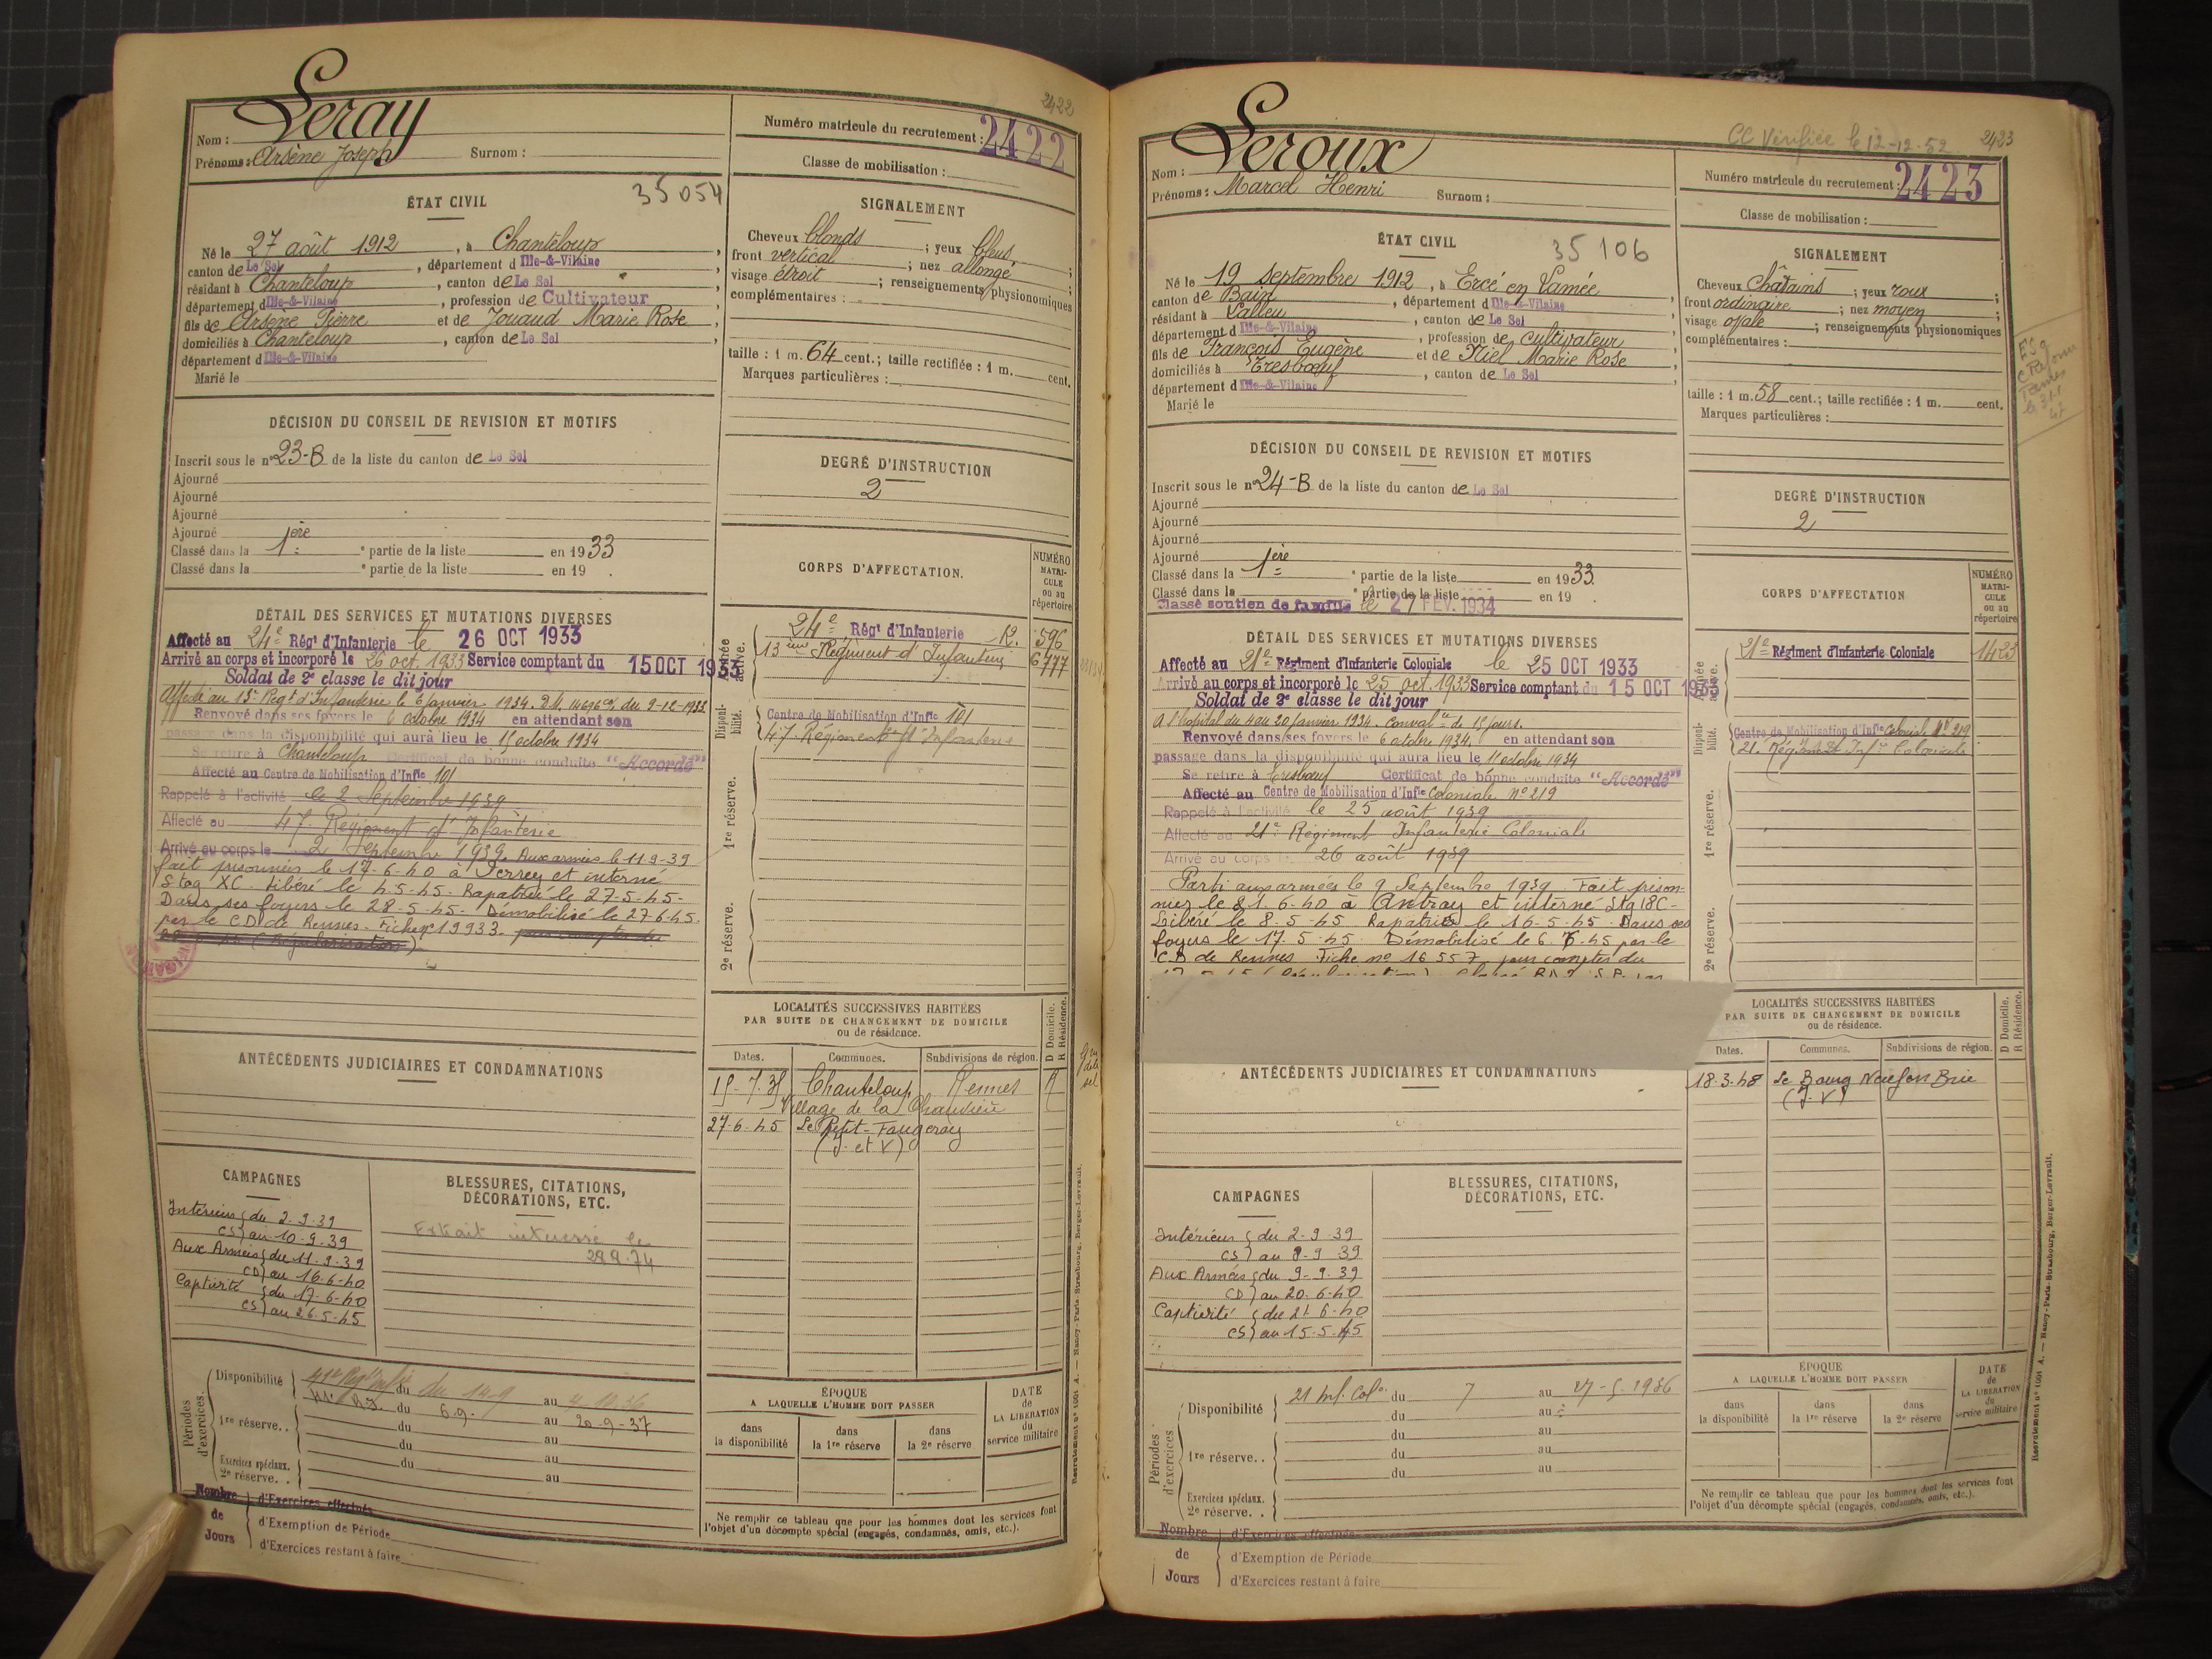 2422
Nom : Leray
Prénoms : Arsène Joseph Surnom :
Numéro matricule du recrutement : 2422
Classe de mobilisation :
ÉTAT CIVIL
35054
Né le 27 août 1912, à Chanteloup,
canton de Le Sel, département d Ille-&-Vilaine
résidant à Chanteloup, canton de Le Sel
département d Ille-&-Vilaine, profession de Cultivateur
fils de Arsène Pierre et de Jouaud Marie Rose,
domiciliés à Chanteloup, canton de Le Sel
département d Ille-&-Vilaine
Marié le
SIGNALEMENT
Cheveux blonds ; yeux bleus ;
front vertical ; nez allongé ;
visage étroit ; renseignements physionomiques
complémentaires :
taille : 1 m. 64 cent.; taille rectifiée : 1 m. cent.
Marques particulières :
DÉCISION DU CONSEIL DE REVISION ET MOTIFS
Inscrit sous le n° 23-B de la liste du canton de Le Sel
Ajourné
Ajourné
Ajourné
Ajourné
Classé dans la 1ère partie de la liste en 1933
Classé dans la e partie de la liste en 19 .
DEGRÉ D'INSTRUCTION
2
DÉTAIL DES SERVICES ET MUTATIONS DIVERSES
Affecté au 24e Régt d'Infanterie le 26 OCT 1933
Arrivé au corps et incorporé le 26 oct. 1933 Service comptant du 15 OCT 1933
Soldat de 2e classe le dit jour
Affecté au 13e Régt d'Infanterie le 6 janvier 1934. D.M. du 9-12-1933
Renvoyé dans ses foyers le 6 octobre 1934 en attendant son
passage dans la disponibilité qui aura lieu le 15 octobre 1934
Se retire à Chanteloup Certificat de bonne conduite "Accordé"
Affecté au Centre de Mobilisation d'Infie 101
Rappelé à l'activité le 2 Septembre 1939
Affecté au 47 Régiment d'Infanterie
Arrivé au corps le 2 Septembre 1939. Aux armées le 11-9-39
fait prisonnier le 17-6-40 à et interné
Stag XC. Libéré le 4-5-45. Rapatrié le 27-5-45-
Dans ses foyers le 28-5-45- Démobilisé le 27-6-45-
par le C.D. de Rennes. Fiche n° 19933. pour compter du
(Régularisation)
CORPS D'AFFECTATION.
NUMÉRO MATRICULE ou au répertoire
Armée active.
24e Régt d'Infanterie 596
13ème Régiment d'Infanterie 6777
Disponibilité.
Centre de Mobilisation d'Infie 101
47 Régiment d'Infanterie
1re réserve.
2e réserve.
LOCALITÉS SUCCESSIVES HABITÉES
PAR SUITE DE CHANGEMENT DE DOMICILE
ou de résidence.
Dates. Communes. Subdivisions de région. D Domicile. R Résidence.
15-7-35 Chanteloup Rennes R
Village de la
27-6-45 Le Petit-Fougeray
(I. et V)
ANTÉCÉDENTS JUDICIAIRES ET CONDAMNATIONS
CAMPAGNES
Intérieur du 2-9-39
CS au 10-9-39
Aux Armées du 11-9-39
CD au 16-6-40
Captivité du 17-6-40
CS au 26-5-45
BLESSURES, CITATIONS,
DÉCORATIONS, ETC.
Extrait intéressé le
Périodes d'exercices.
Disponibilité 41e Régt Infie du 14-9 au
R.I. du 6.9. au 20-9-37
1re réserve. . du au
du au
Exercices spéciaux.
2e réserve. . du au
Nombre de Jours
d'Exercices effectués
d'Exemption de Période
d'Exercices restant à faire
ÉPOQUE
A LAQUELLE L'HOMME DOIT PASSER
dans la disponibilité
dans la 1re réserve
dans la 2e réserve
DATE de LA LIBÉRATION du service militaire
Ne remplir ce tableau que pour les hommes dont les services font
l'objet d'un décompte spécial (engagés, condamnés, omis, etc.).
Recrutement n° 1001 A. — Nancy-Paris-Strasbourg, Berger-Levrault.
CC Vérifiée le 12-12-52
2423
Nom : Leroux
Prénoms : Marcel Henri Surnom :
Numéro matricule du recrutement : 2423
Classe de mobilisation :
ÉTAT CIVIL
35106
Né le 19 septembre 1912, à Ercé en Lamée
canton de Bain, département d Ille-&-Vilaine
résidant à Lalleu, canton de Le Sel
département d Ille-&-Vilaine, profession de cultivateur
fils de François Eugène et de Niel Marie Rose
domiciliés à Tresbœuf, canton de Le Sel
département d Ille-&-Vilaine
Marié le
SIGNALEMENT
Cheveux Châtains ; yeux roux ;
front ordinaire ; nez moyen ;
visage ovale ; renseignements physionomiques
complémentaires :
taille : 1 m. 58 cent.; taille rectifiée : 1 m. cent.
Marques particulières :
DÉCISION DU CONSEIL DE REVISION ET MOTIFS
Inscrit sous le n° 24-B de la liste du canton de Le Sel
Ajourné
Ajourné
Ajourné
Ajourné
Classé dans la 1ère partie de la liste en 1933.
Classé dans la e partie de la liste en 19 .
Classé soutien de famille le 27 FEV. 1934
DEGRÉ D'INSTRUCTION
2
DÉTAIL DES SERVICES ET MUTATIONS DIVERSES
Affecté au 21e Régiment d'Infanterie Coloniale le 25 OCT 1933
Arrivé au corps et incorporé le 25 oct. 1933 Service comptant du 15 OCT 1933
Soldat de 2e classe le dit jour
A l'hopital du 4 au 20 janvier 1934. Convalce de 15 jours.
Renvoyé dans ses foyers le 6 octobre 1934. en attendant son
passage dans la disponibilité qui aura lieu le 15 octobre 1934
Se retire à Tresbœuf Certificat de bonne conduite "Accordé"
Affecté au Centre de Mobilisation d'Infie Coloniale n° 219
Rappelé à l'activité le 25 août 1939
Affecté au 21e Régiment Infanterie Coloniale
Arrivé au corps le 26 août 1939
Parti aux armées le 9 Septembre 1939. Fait prison-
nier le 21-6-40 à et interné Stg 18C-
Libéré le 8-5-45 Rapatrié le 16-5-45. Dans ses
foyers le 17-5-45. Démobilisé le 6.7.45 par le
C.D de Rennes Fiche n° 16557 pour compter du
CORPS D'AFFECTATION
NUMÉRO MATRICULE ou au répertoire
Armée active.
21e Régiment d'Infanterie Coloniale 1423
Disponibilité.
Centre de Mobilisation d'Infie Coloniale N° 219
21e Régiment Infie Coloniale
1re réserve.
2e réserve.
LOCALITÉS SUCCESSIVES HABITÉES
PAR SUITE DE CHANGEMENT DE DOMICILE
ou de résidence.
Dates. Communes. Subdivisions de région. D Domicile. R Résidence.
18.3.48 Le Bourg Neuf en Brie
(I. V)
ANTÉCÉDENTS JUDICIAIRES ET CONDAMNATIONS
CAMPAGNES
Intérieur du 2-9-39
CS au 8-9-39
Aux Armées du 9-9-39
CD au 20-6-40
Captivité du 21-6-40
CS au 15-5-45
BLESSURES, CITATIONS,
DÉCORATIONS, ETC.
Périodes d'exercices
Disponibilité 21 Inf. Colo du 7 au 27-5-1936
du au
1re réserve. . du au
du au
du au
Exercices spéciaux.
2e réserve. .
Nombre de Jours
d'Exercices effectués
d'Exemption de Période
d'Exercices restant à faire
ÉPOQUE
A LAQUELLE L'HOMME DOIT PASSER
dans la disponibilité
dans la 1re réserve
dans la 2e réserve
DATE de LA LIBÉRATION du service militaire
Ne remplir ce tableau que pour les hommes dont les services font
l'objet d'un décompte spécial (engagés, condamnés, omis, etc.).
Recrutement n° 1001 A. — Nancy-Paris-Strasbourg, Berger-Levrault.